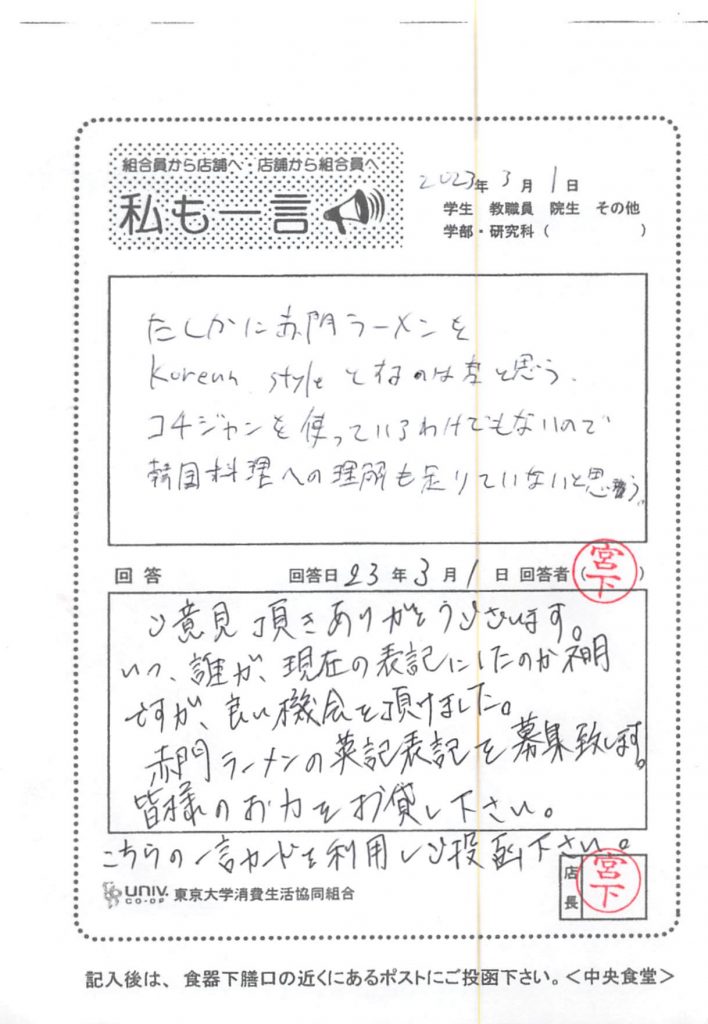 組合員から店舗へ・店舗から組合員へ
私も一言
2023年3月1日
学生 教職員 院生 その他
学部・研究科 ( )
たしかに赤門ラーメンを
Korean style とするのは変と思う.
コチジャンを使っているわけでもないので
韓国料理への理解も足りていないと思う。
回答 回答日 23年3月1日 回答者 (宮下)
ご意見頂きありがとうございます。
いつ、誰が、現在の表記にしたのか不明
ですが、良い機会を頂けました。
赤門ラーメンの英記表記を募集致します。
皆様のお力をお貸し下さい。
こちらの一言カードを利用しご投函下さい。
UNIV. CO-OP 東京大学消費生活協同組合
店長 宮下
記入後は、食器下膳口の近くにあるポストにご投函下さい。＜中央食堂＞